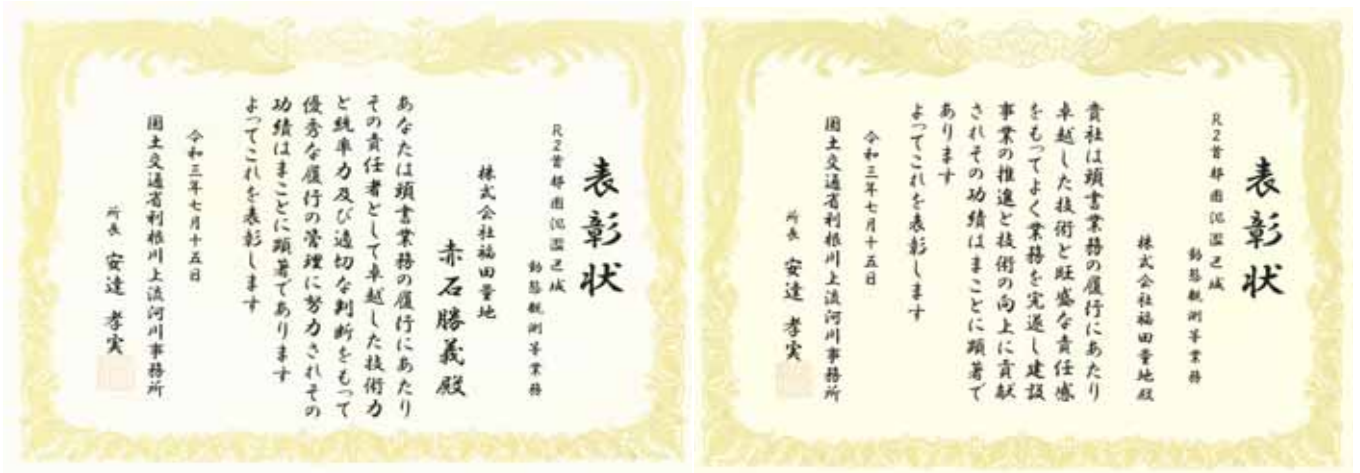 表彰状
R2首都圏氾濫区域
動態観測等業務
株式会社福田量地
赤石勝義殿
あなたは頭書業務の履行にあたり
その責任者として卓越した技術力
と統率力及び適切な判断をもって
優秀な履行の管理に努力されその
功績はまことに顕著であります
よってこれを表彰します
令和三年七月十五日
国土交通省利根川上流河川事務所
所長 安達孝実
表彰状
R2首都圏氾濫区域
動態観測等業務
株式会社福田量地殿
貴社は頭書業務の履行にあたり
卓越した技術と旺盛な責任感
をもってよく業務を完遂し建設
事業の推進と技術の向上に貢献
されその功績はまことに顕著で
あります
よってこれを表彰します
令和三年七月十五日
国土交通省利根川上流河川事務所
所長 安達孝実